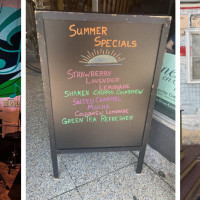 Summer
Specials
Strawberry
Lavender
Lemonade
Shaken Churro Cold Brew
Salted Caramel
Mocha
Cold Brew Lemonade
Green Tea Refresher